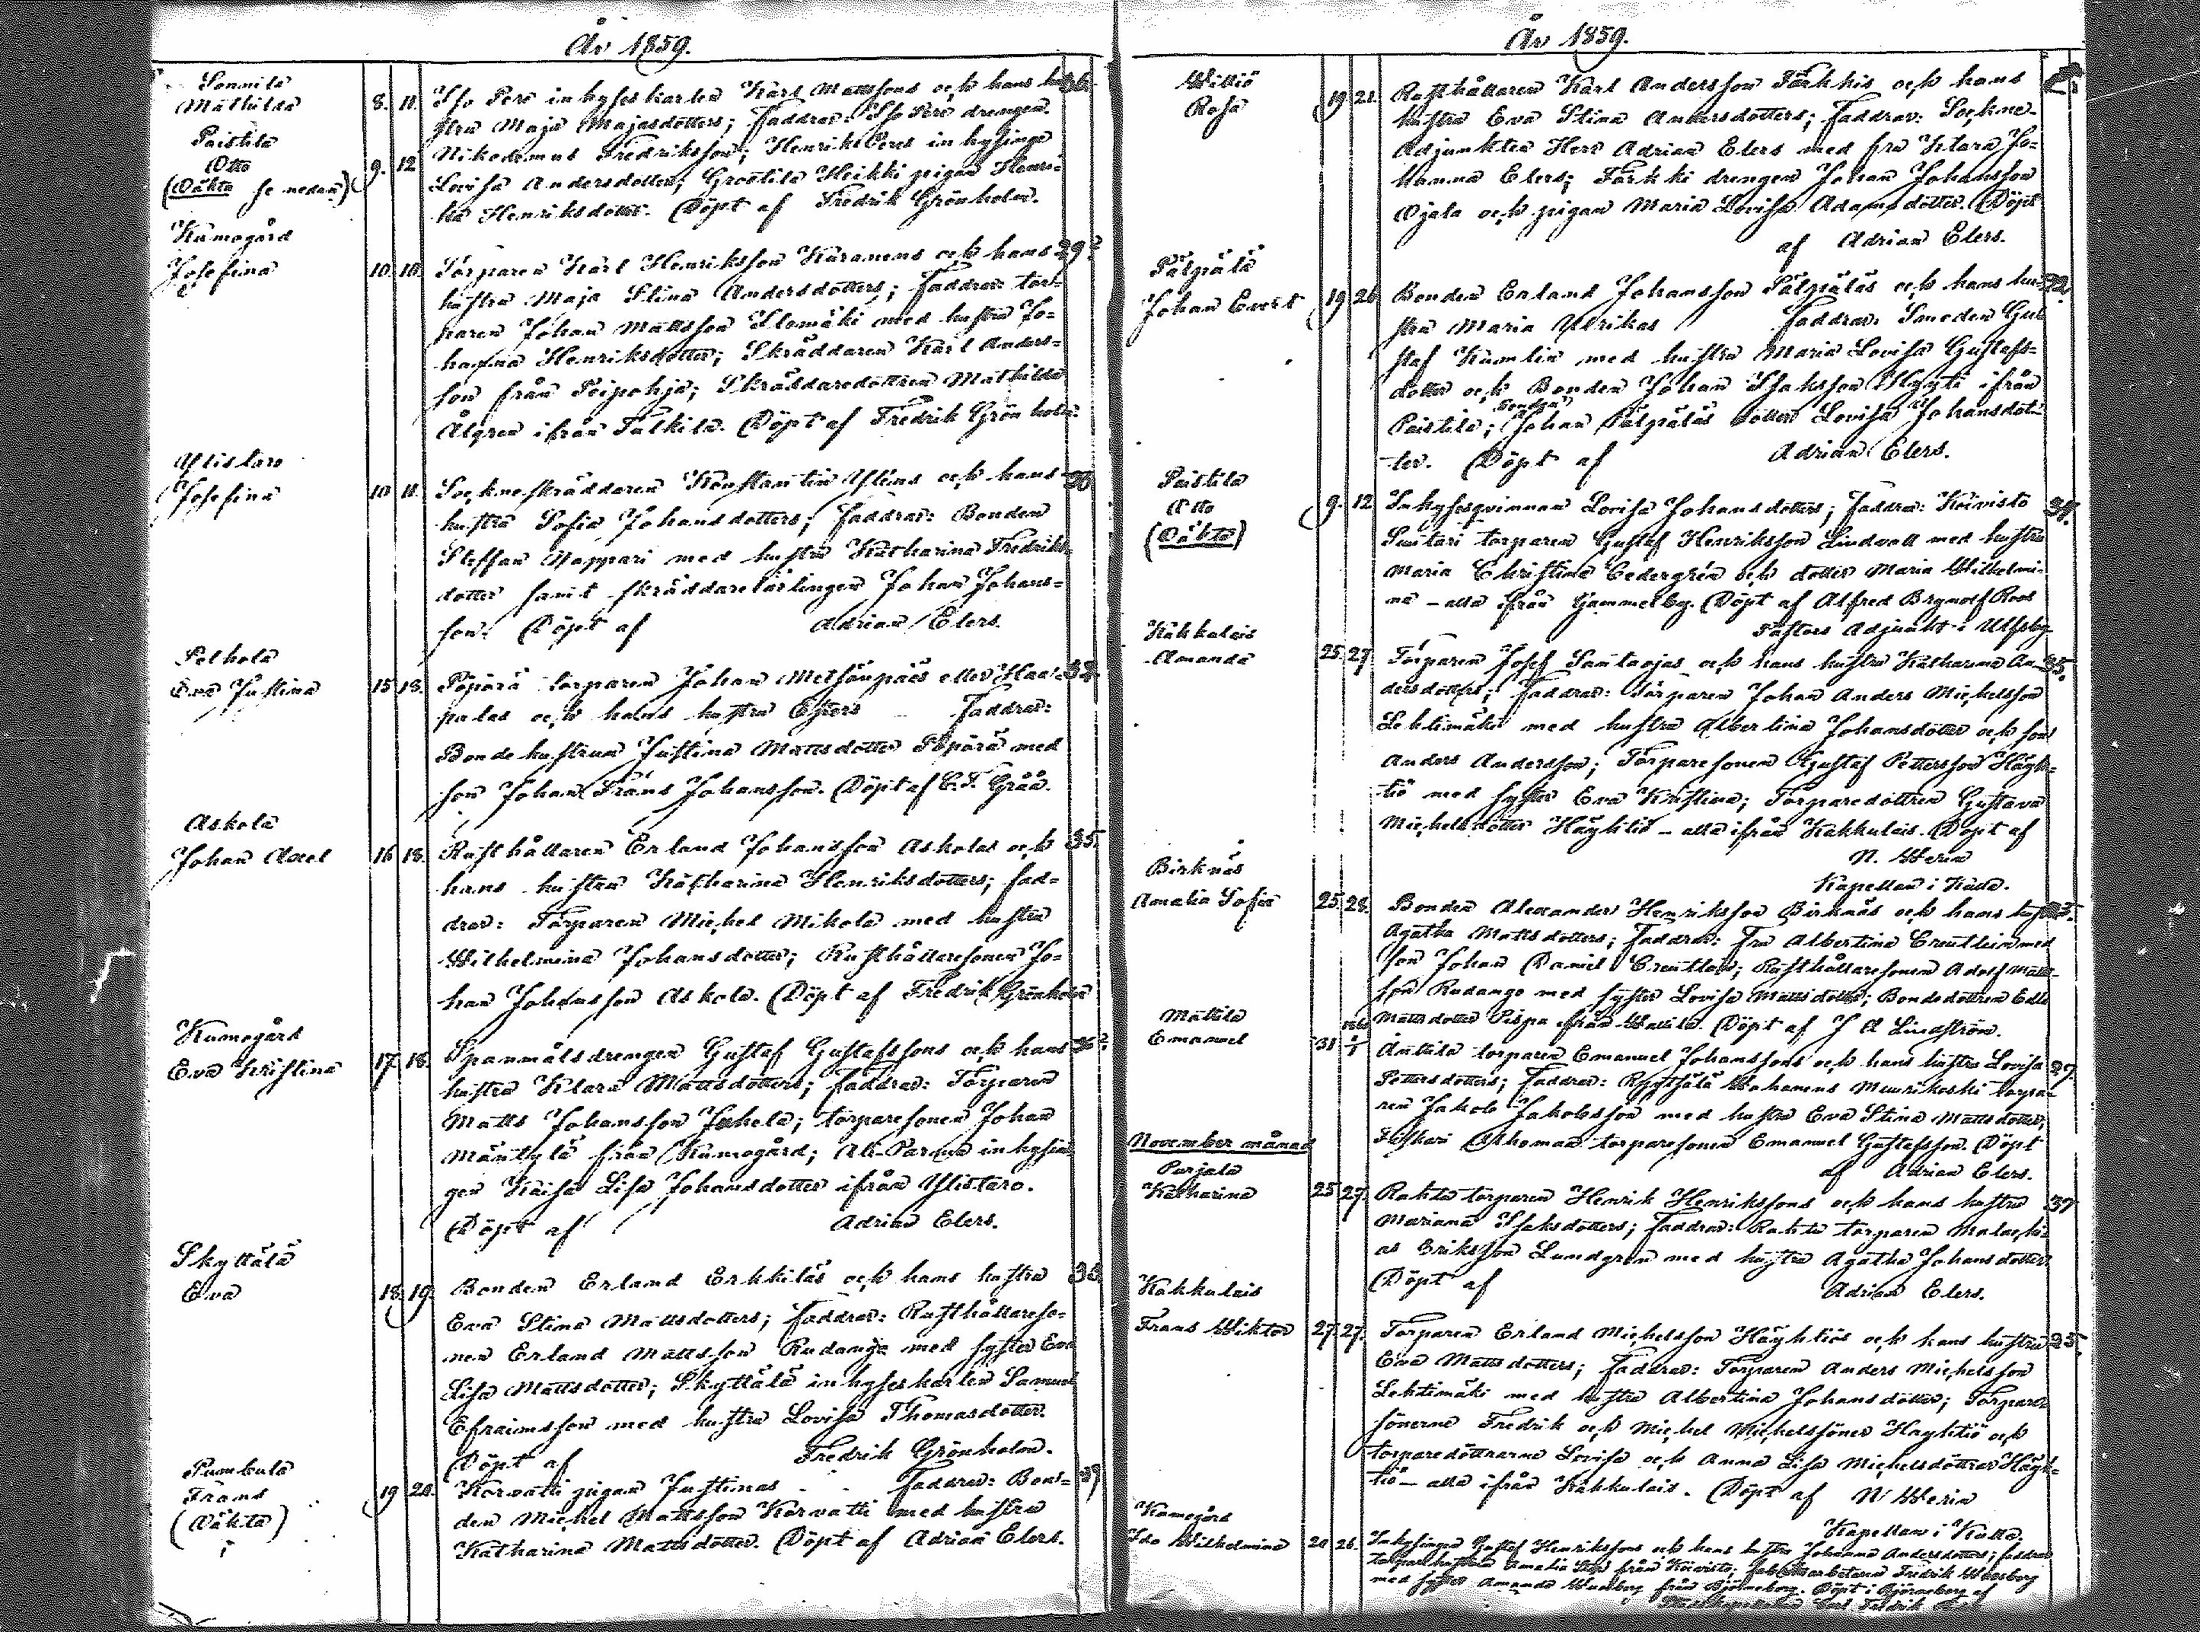 År 1859.
Sonnila
Mathilda 8. 11. Iso Pere inhyseskarlen Karl Mattssons och hans hu- 36.
stru Maja Majasdotters; Faddrar: Iso Pere drengen
Paistila
Nikodemus Fredriksson; Henriks Peres inhysinge
Otto 9. 12
(Oäkta se nedan)
Lovisa Andersdotter; Grootila Heikki pigan Henri-
ka Henriksdotter. Döpt af Fredrik Grönholm.
Kumogård
Josefina 10. 10. Torparen Karl Henriksson Karanens och hans 29
hustru Maja Stina Andersdotters; Faddrar: tor-
paren Johan Mattsson Slomäki med hustru Jo-
hanna Henriksdotter; Skräddaren Karl Anders-
son från Peipohja; Skräddaredottren Mathilda
Ålgren ifrån Tulkila. Döpt af Fredrik Grönholm.
Ylistaro
Josefina 10 11. Sockneskräddaren Konstantin Ylléns och hans
hustru Sofia Johansdotters; Faddrar: Bonden
Steffan Nappari med hustru Katharina Fredriks-
dotter samt skräddarelärlingen Johan Johans-
son. Döpt af Adrian Elers.
Pelhola
Eva Justina 15 18. Pöpörä torparen Johan Metsänpääs eller Haa-
palas och hans hustru Esters Faddrar:
Bondehustrun Justina Mattsdotter Pöpörä med
son Johan Frans Johansson. Döpt af C. F. Gråå.
Askola
Johan Axel 16 18. Rusthållaren Erland Johansson Askolas och 35.
hans hustru Katharina Henriksdotters; Fad-
drar: Torparen Michel Mikola med hustru
Wilhelmina Johansdotter; Rusthållaresonen Jo-
han Johansson Askola. Döpt af Fredrik Grönholm
Kumogård
Eva Kristina 17. 18. Spanmålsdrengen Gustaf Gustafssons och hans
hustru Klara Mattsdotters; Faddrar: Torparen
Matts Johansson Juhela; torparesonen Johan
Mäntylä från Kumogård; Ali-Parma inhysin-
gen Kaisa Lisa Johansdotter ifrån Ylistaro.
Döpt af Adrian Elers.
Skyttälä
Eva 18. 19. Bonden Erland Erkkiläs och hans hustru 33
Eva Stina Mattsdotters; Faddrar: Rusthållareso-
nen Erland Mattsson Rudanga med syster Eva
Lisa Mattsdotter; Skyttälä inhyseskarlen Samuel
Efraimsson med hustru Lovisa Thomasdotter.
Döpt af Fredrik Grönholm.
Pumbula
Frans 19 20. Korvatti pigan Justinas Faddrar: Bon- 39
(Oäkta)
den Michel Mattsson Korvatti med hustru
Katharina Mattsdotter. Döpt af Adrian Elers.
År 1859.
Willio
Rosa 19. 21. Rusthållaren Karl Andersson Tarkkis och hans
hustru Eva Stina Andersdotters; Faddrar: Sockne-
Adjunkten Herr Adrian Elers med fru Klara Jo-
hanna Elers; Tarkki drengen Johan Johansson
Ojala och pigan Maria Lovisa Adamsdotter. Döpt
af Adrian Elers.
Pälpälä
Johan Evert 19 26 Bonden Erland Johansson Pälpäläs och hans hu-
stru Maria Ulrikas Faddrar: Smeden Gu-
staf Kumlin med hustru Maria Lovisa Gustafs-
dotter och Bonden Johan Isaksson Hyyti ifrån
Paistila; Bonden Johan Pälpäläs dotter Lovisa Johansdot-
ter. Döpt af Adrian Elers.
Paistila
Otto 9. 12 Inhysesqvinnan Lovisa Johansdotters; Faddrar: Koivisto 34.
(Oäkta)
Santari torparen Gustaf Henriksson Lindvall med hustru
Maria Christina Cedergrén och dotter Maria Wilhelmi-
na – alla ifrån Gammelby. Döpt af Alfred Brynolf Roos
Pastors Adjunkt i Ulfsby.
Kakkulais
Amanda 25. 27 Torparen Josef Santaojas och hans hustru Katharina An- 35.
dersdotters; Faddrar: Torparen Johan Anders Michelsson
Lehtimäki med hustru Albertina Johansdotter och son
Anders Andersson; Torparesonen Gustaf Pettersson Häyh-
tiö med syster Eva Kristina; Torparedottren Gustava
Michelsdotter Häyhtiö – alla ifrån Kakkulais. Döpt af
N. Werin
Kapellan i Kulla.
Birknäs
Amalia Sofia 25. 28. Bonden Alexander Henriksson Birknäs och hans hustru
Agatha Mattsdotters; Faddrar: Fru Albertina Creutlein med
son Johan Daniel Creutlein; Rusthållaresonen Adolf Matts-
son Rudango med syster Lovisa Mattsdotter; Bondedottren Edla
Mattsdotter Pispa ifrån Wallila. Döpt af J A Lindström.
Mattila
Emanuel 31 Anttila torparen Emanuel Johanssons och hans hustru Lovisa 27.
Pettersdotters; Faddrar: Ryytsälä Wahanens Muurikoski torpa-
ren Jakob Jakobsson med hustru Eva Stina Mattsdotter;
torparesonen Emanuel Gustafsson. Döpt
af Adrian Elers.
November månad
Purjala
Katharina 25 27. Rahta torparen Henrik Henrikssons och hans hustru 37
Mariana Isaksdotters; Faddrar: Rahta torparen Malachi-
as Eriksson Lundgren med hustru Agatha Johansdotter
Döpt af Adrian Elers.
Kakkulais
Frans Wiktor 27. 27. Torparen Erland Michelsson Häyhtiös och hans hustru 25.
Eva Mattsdotters; Faddrar: Torparen Anders Michelsson
Lehtimäki med hustru Albertina Johansdotter; Torpare-
sönerne Fredrik och Michel Michelssöner Häyhtiö och
torparedöttrarne Lovisa och Anna Lisa Michelsdöttrar Häyh-
tiö – alla ifrån Kakkulais. Döpt af N. Werin
Kapellan i Kulla.
Kumogård
Ida Wilhelmina 20 26. Inhysingen Gustaf Henrikssons och hans hustru Johanna Andersdotters; Faddrar
torparehustrun Amalia från Koivisto; Fabriksarbetaren Fredrik Wassberg
med syster Amanda Wassberg från Björneborg. Döpt i Björneborg af
Carl Fredrik